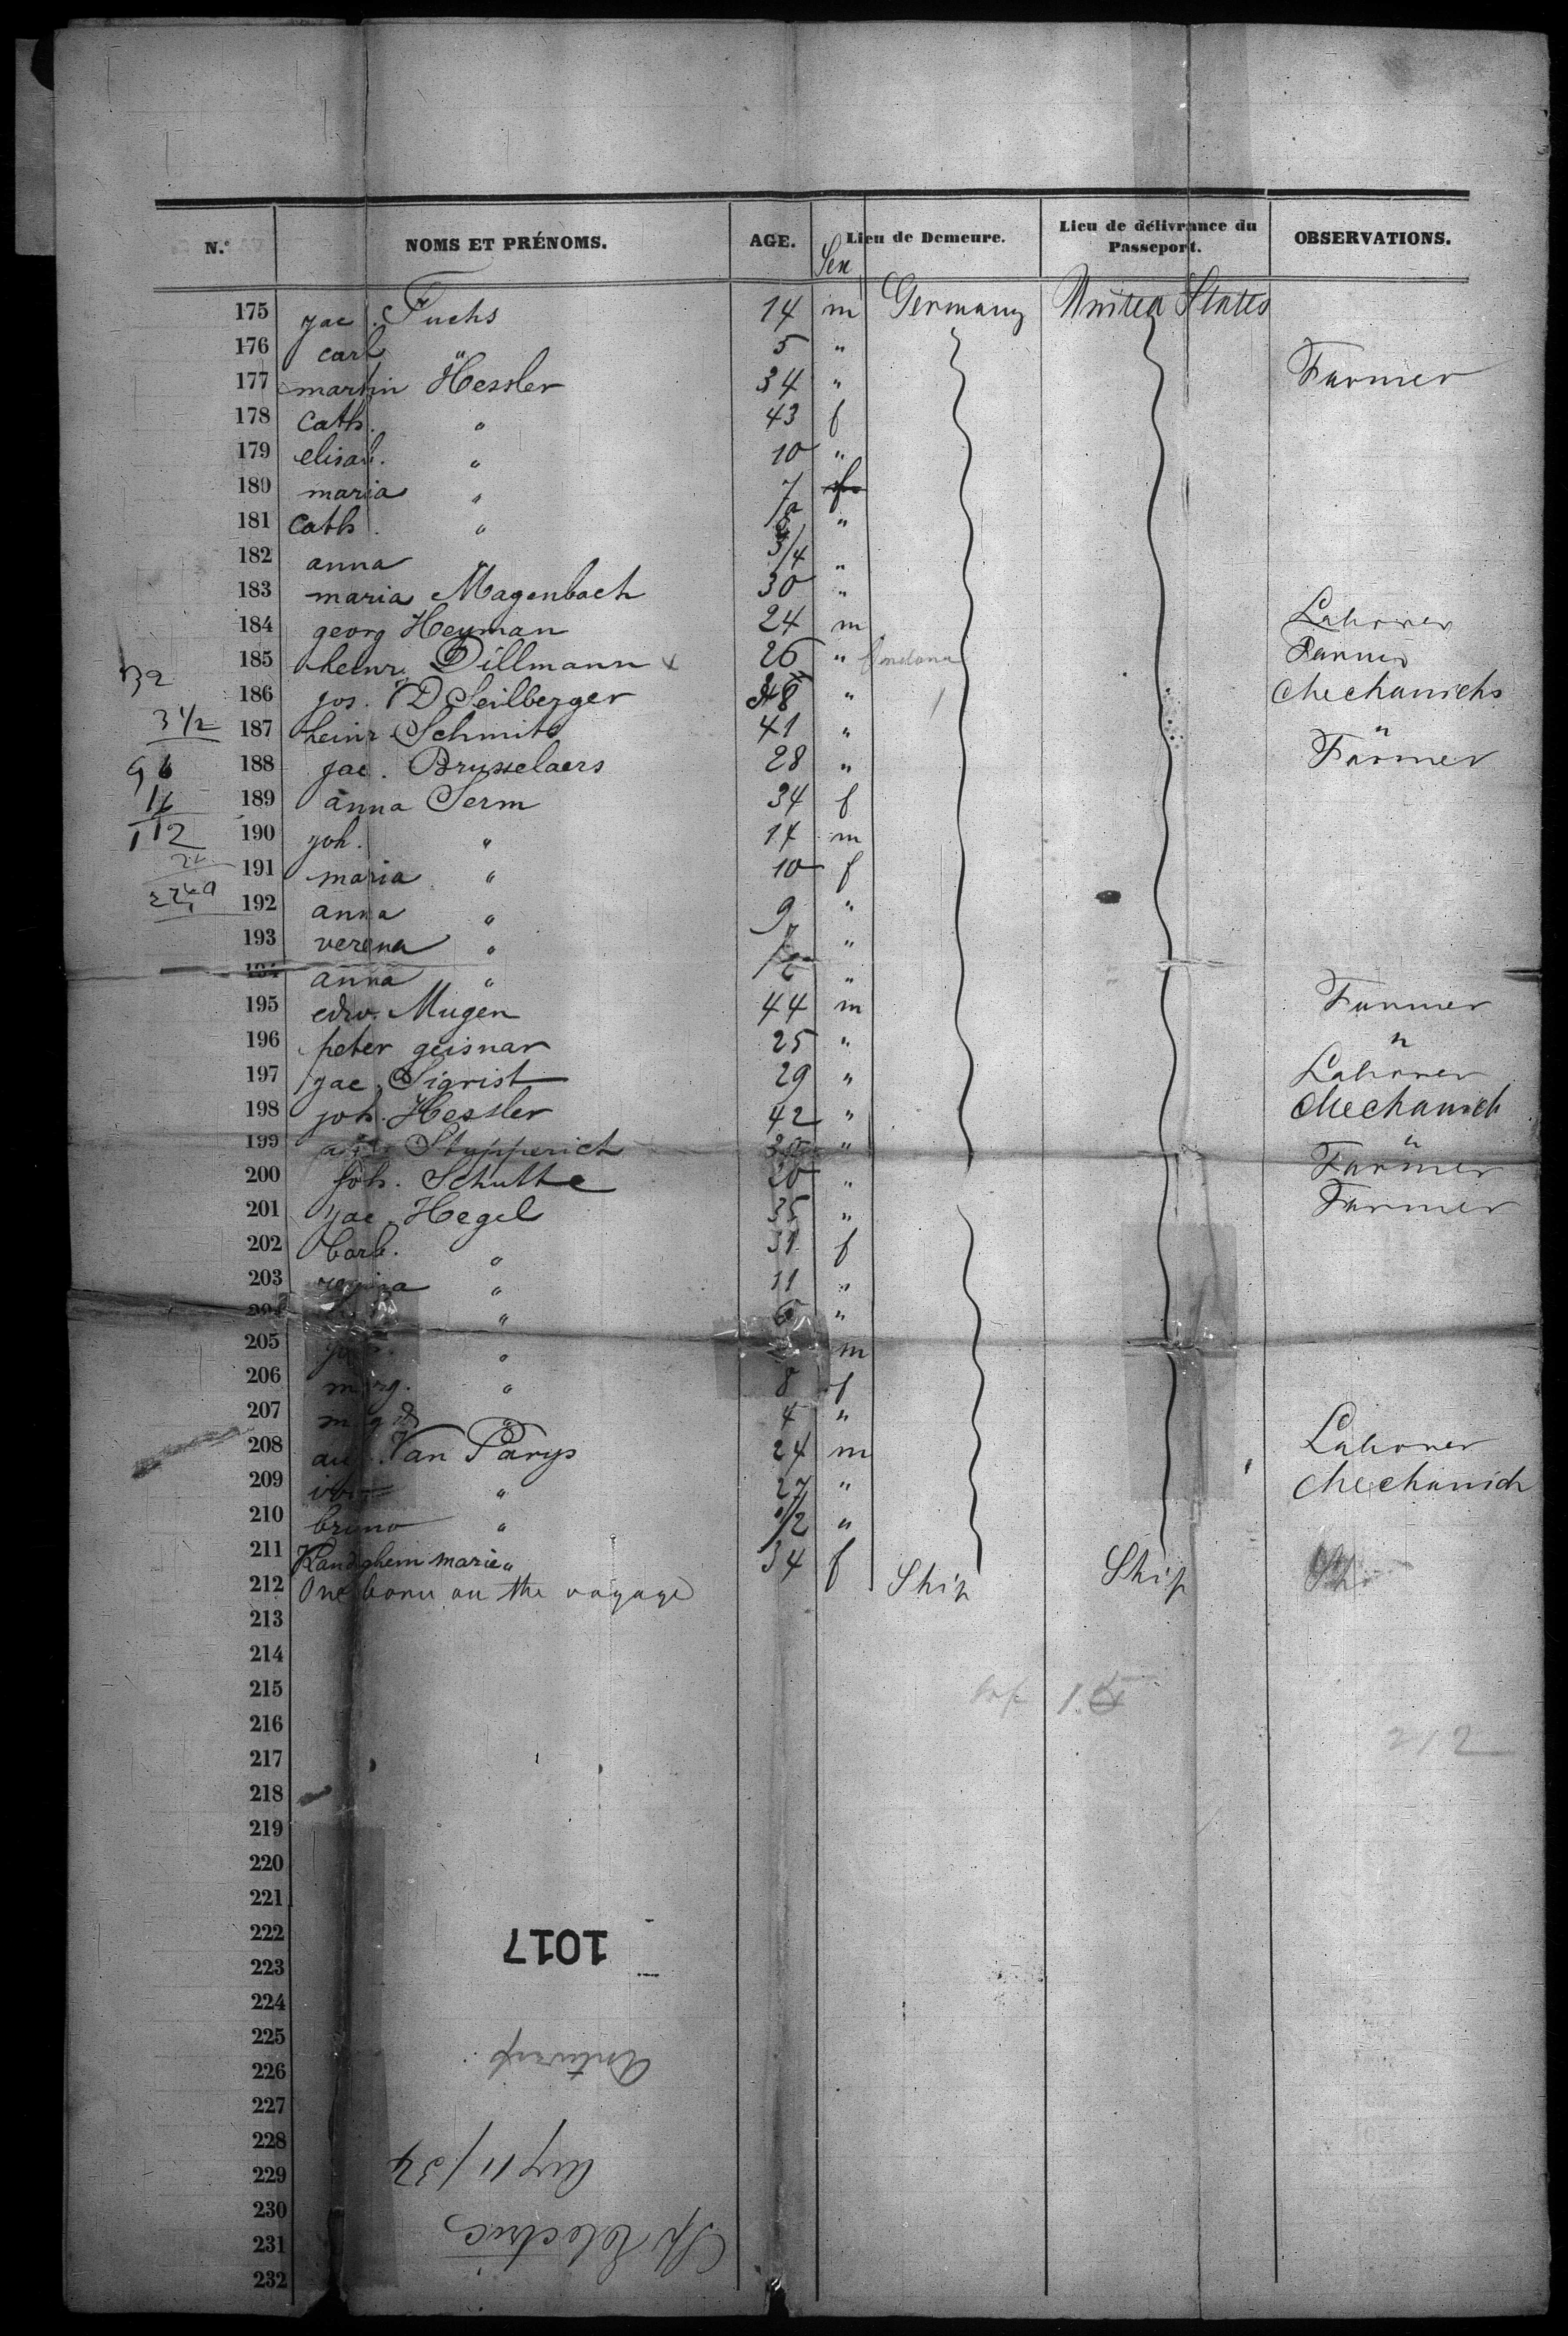 N.° NOMS ET PRÉNOMS. AGE. Sex Lieu de Demeure. Lieu de délivrance du Passeport. OBSERVATIONS.
175 jac. Fuchs 14 m Germany United States
176 carl " 5 "
177 martin Hessler 34 " Farmer
178 Cath. " 43 f
179 elisab. " 10 "
180 maria " 7 f
181 Cath. " "
182 anna " 3/4 "
183 maria Magenbach 30 "
184 georg Heyman 24 m Labourer
185 heinr. Dillmann x 26 " Farmer
186 jos. D Seilberger 48 " Mechanichs
187 heinr. Schmitz 41 " "
188 jac. Brysselaers 28 " Farmer
189 anna Serm 34 f
190 joh. " 14 m
191 maria " 10 f
192 anna " 9 "
193 verena " 7 "
194 anna " "
195 edw. Mugen 44 m Farmer
196 peter geisnar 25 " "
197 jac. Sigrist 29 " Labourer
198 joh. Hessler 42 " Mechanich
199 Stupperich " "
200 joh. Schutte 20 " Farmer
201 jac. Hegel 35 " Farmer
202 barb. " 31 f
203 regina " 11 "
204 " 6 "
205 " m
206 marg. " 8 f
207 " 4 "
208 Van Parys 24 m Labourer
209 " 27 " Mechanich
210 bruno " 1/2 "
211 marie " 34 f
212 One born on the voyage Ship Ship
213
214
215
216
212
217
218
219
220
221
222
1017
223
224
225
Antwerp
226
227
228
Aug 11/54
229
230
Sp Electric
231
232
3 1/2
96
16
112